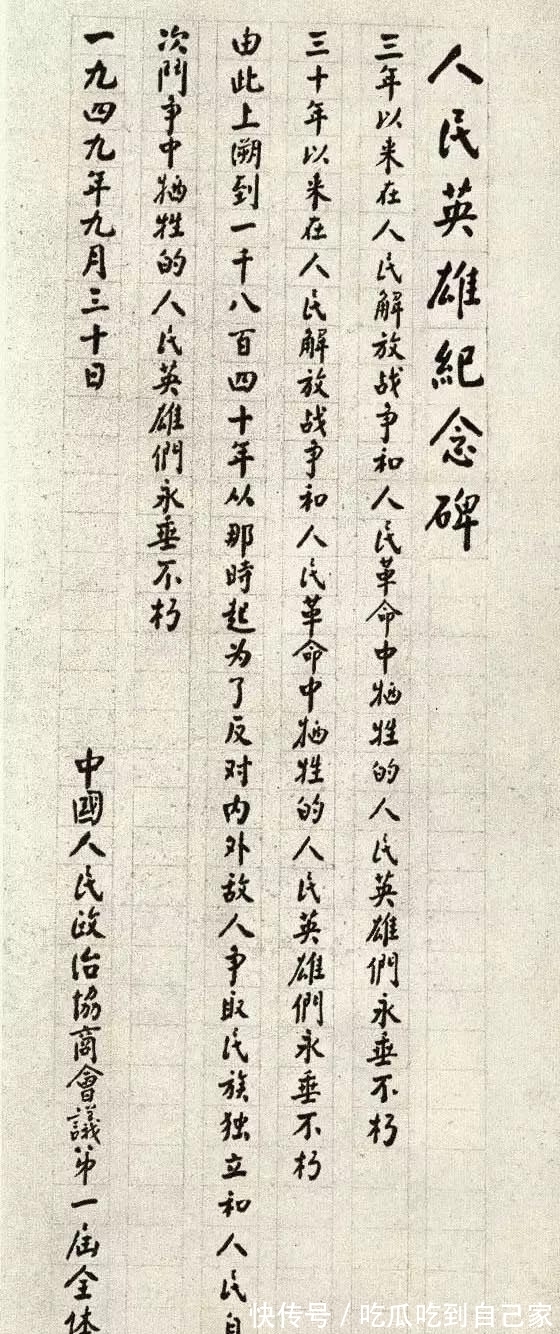 人民英雄紀念碑
三年以来在人民解放战争和人民革命中牺牲的人民英雄們永垂不朽
三十年以来在人民解放战争和人民革命中牺牲的人民英雄們永垂不朽
由此上溯到一千八百四十年从那時起为了反对内外敌人争取民族独立和人民自
次鬥争中牺牲的人民英雄們永垂不朽
一九四九年九月三十日
中國人民政治協商會議第一屆全体
快传号/吃瓜吃到自己家